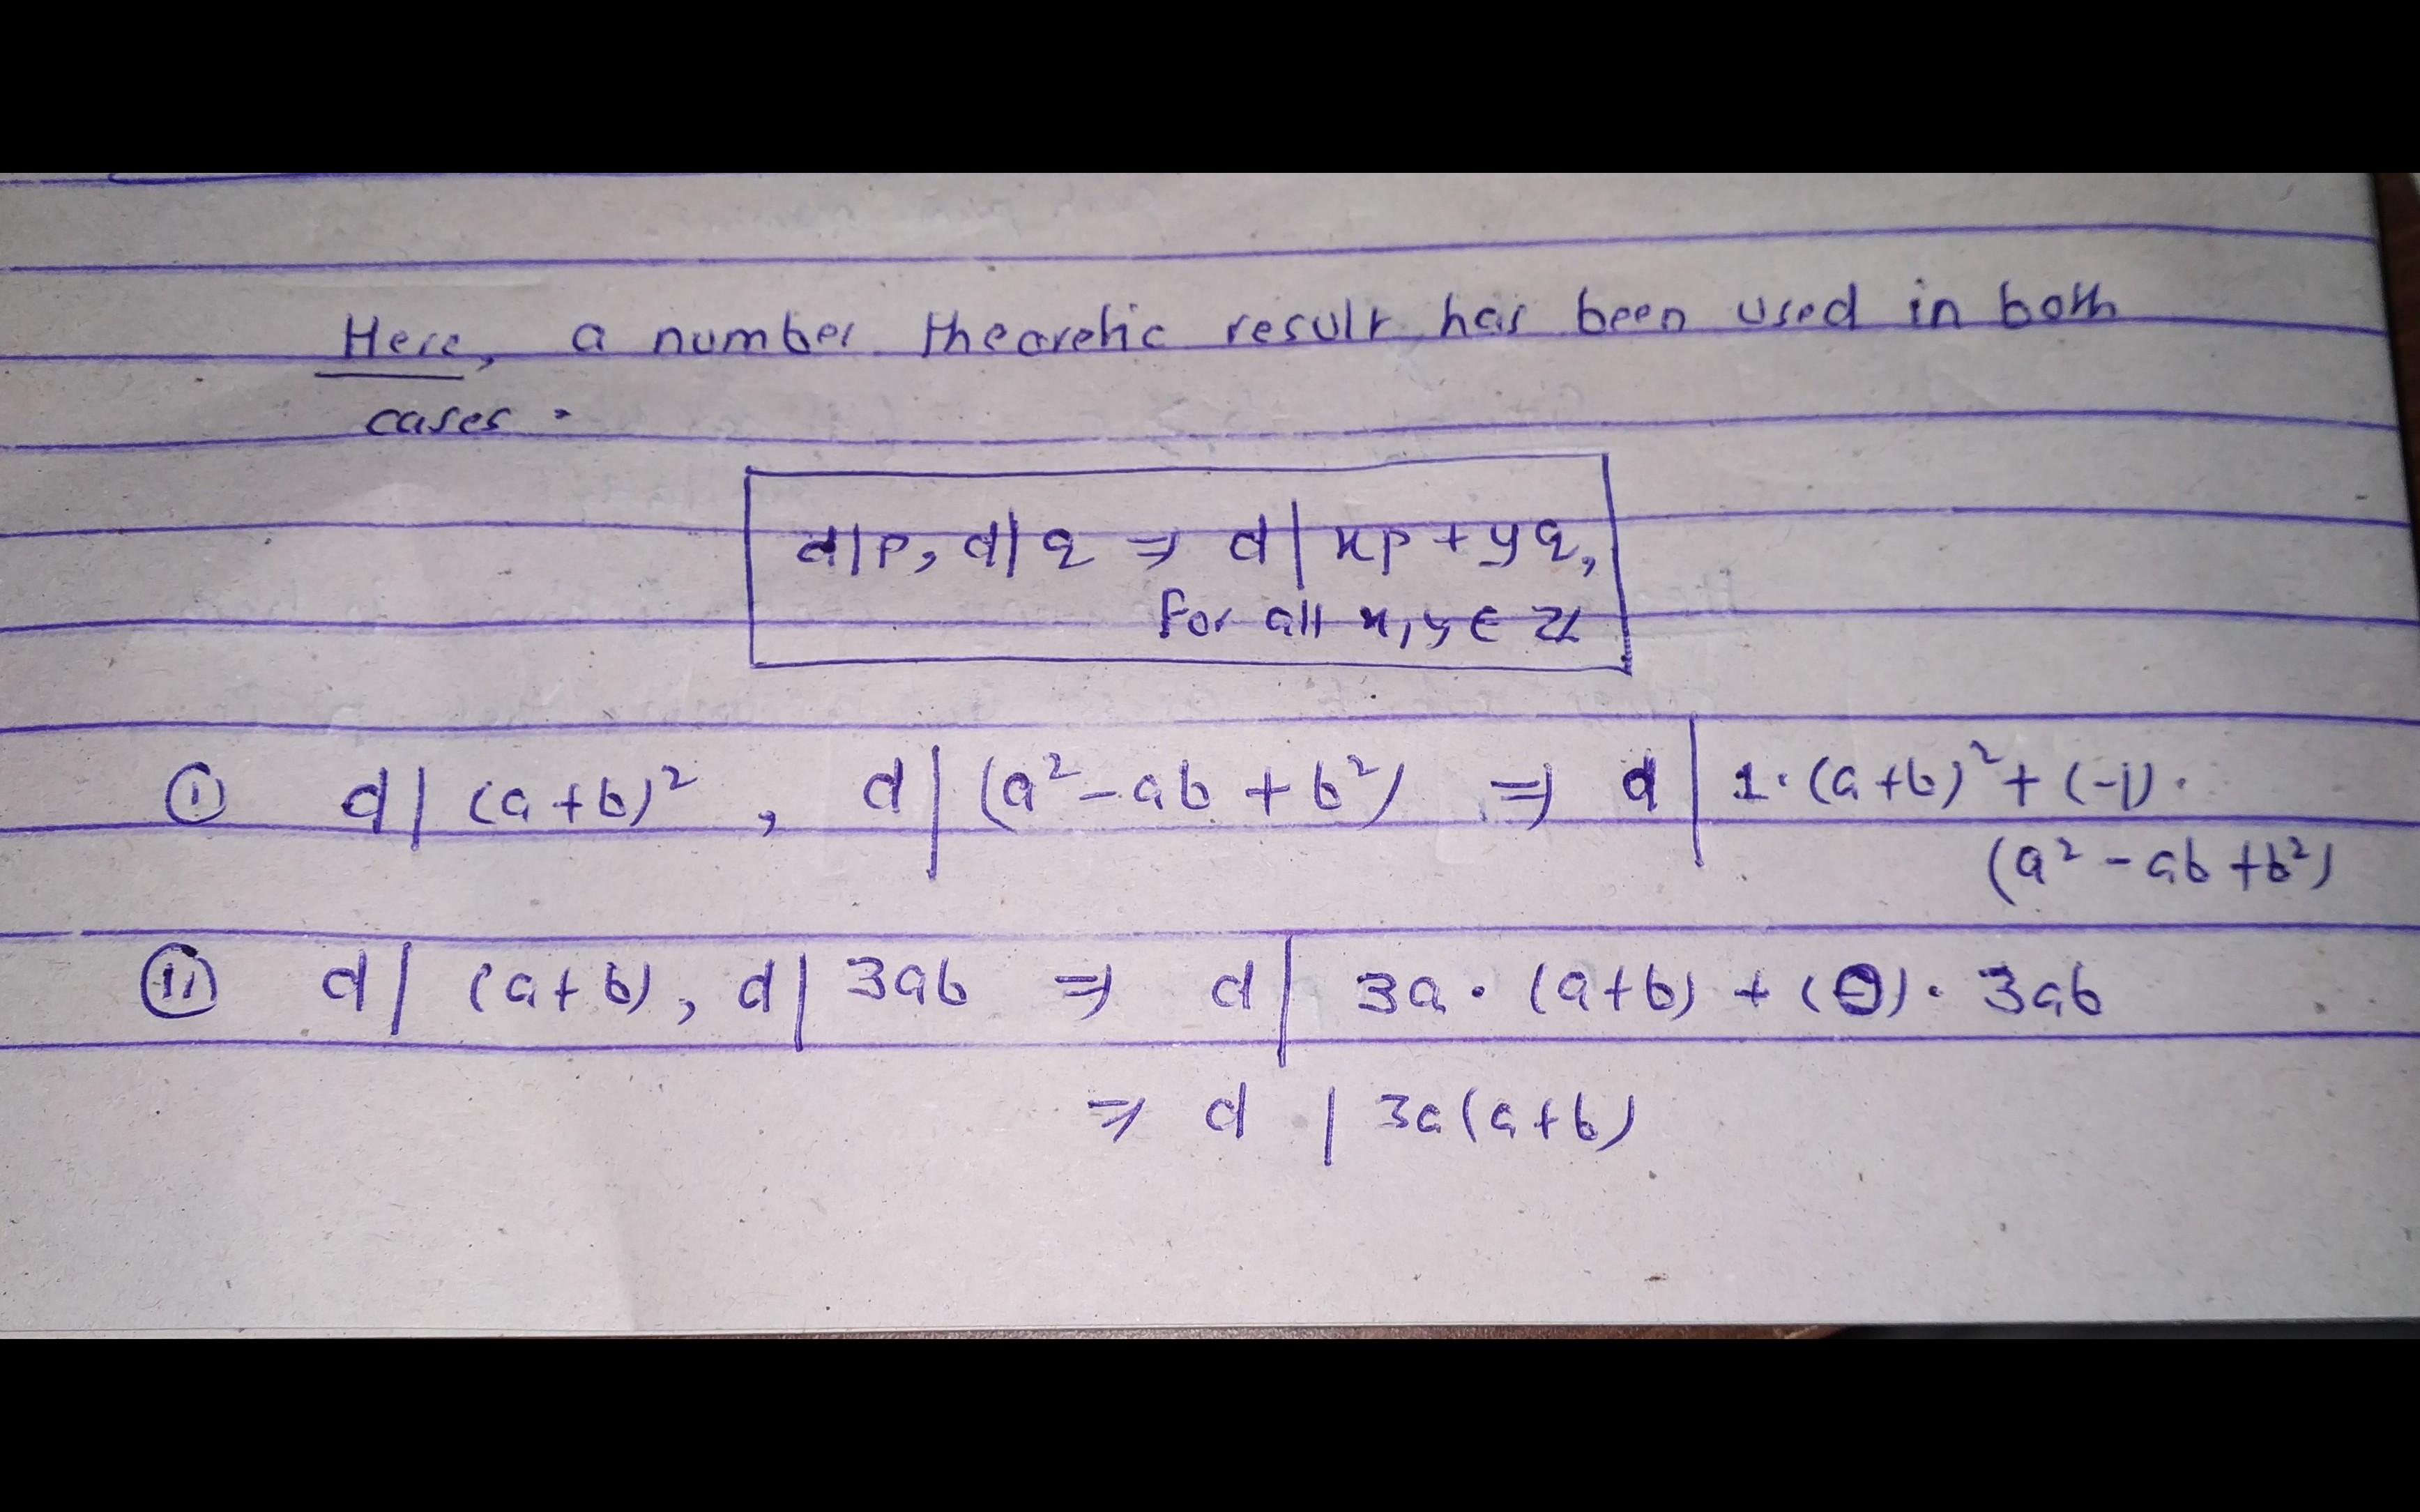 Here, a number theoretic result has been used in both
cases.
d|p, d|q ⇒ d|xp + yq,
for all x, y ∈ ℤ
(i) d|(a+b)², d|(a²-ab+b²) ⇒ d|1·(a+b)²+(-1)·
(a²-ab+b²)
(ii) d|(a+b), d|3ab ⇒ d|3a·(a+b)+(0)·3ab
⇒ d|3a(a+b)